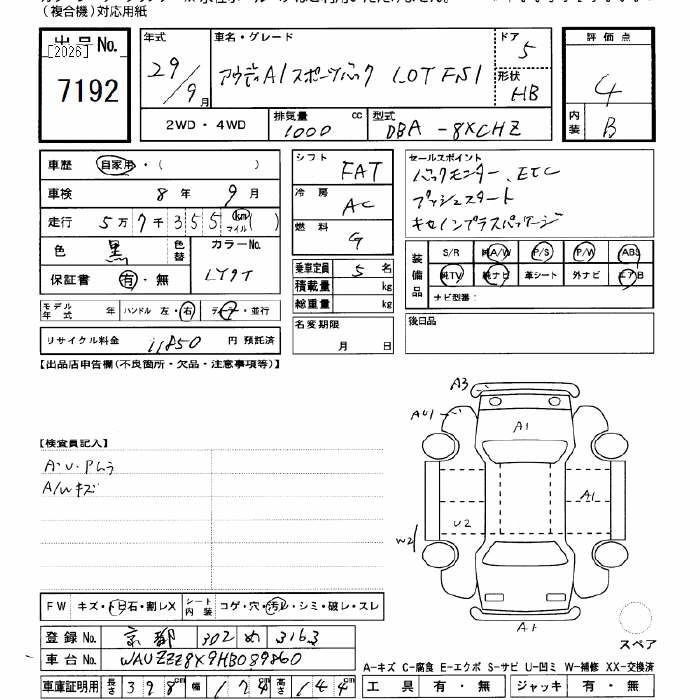 (複合機)対応用紙
出品No. [2026] 7192
年式 29/9月
車名・グレード アウディA1スポーツバック 1.0TFSI
ドア 5
形状 HB
評価点 4
内装 B
2WD・4WD
排気量 1000 cc
型式 DBA-8XCHZ
車歴 自家用・( )
車検 8年 9月
走行 5万7千355 km マイル( )
色 黒 色替
カラーNo. LY9T
保証書 有・無
モデル年式 年 ハンドル 左・右 ディーラー・並行
リサイクル料金 11850 円 預託済
シフト FAT
冷房 AC
燃料 G
乗車定員 5名
積載量 kg
総重量 kg
名変期限 月 日
セールスポイント
バックモニター、ETC
プッシュスタート
キセノンプラスパッケージ
装備品 S/R 純A/W P/S P/W ABS
純TV 純ナビ 革シート 外ナビ エアB
ナビ型番:
後日品
【出品店申告欄(不良箇所・欠品・注意事項等)】
【検査員記入】
A・U・Pムラ
A/Wキズ
A3
AU1
A1
A1
U2
W2
A1
スペア
FW キズ・トビ石・割レX シート内装 コゲ・穴・汚レ・シミ・破レ・スレ
登録No. 京都 302 め 3163
車台No. WAUZZZ8X9HB089860
車庫証明用 長さ 398cm 幅 174cm 高さ 144cm
A-キズ C-腐食 E-エクボ S-サビ U-凹ミ W-補修 XX-交換済
工具 有・無 ジャッキ 有・無